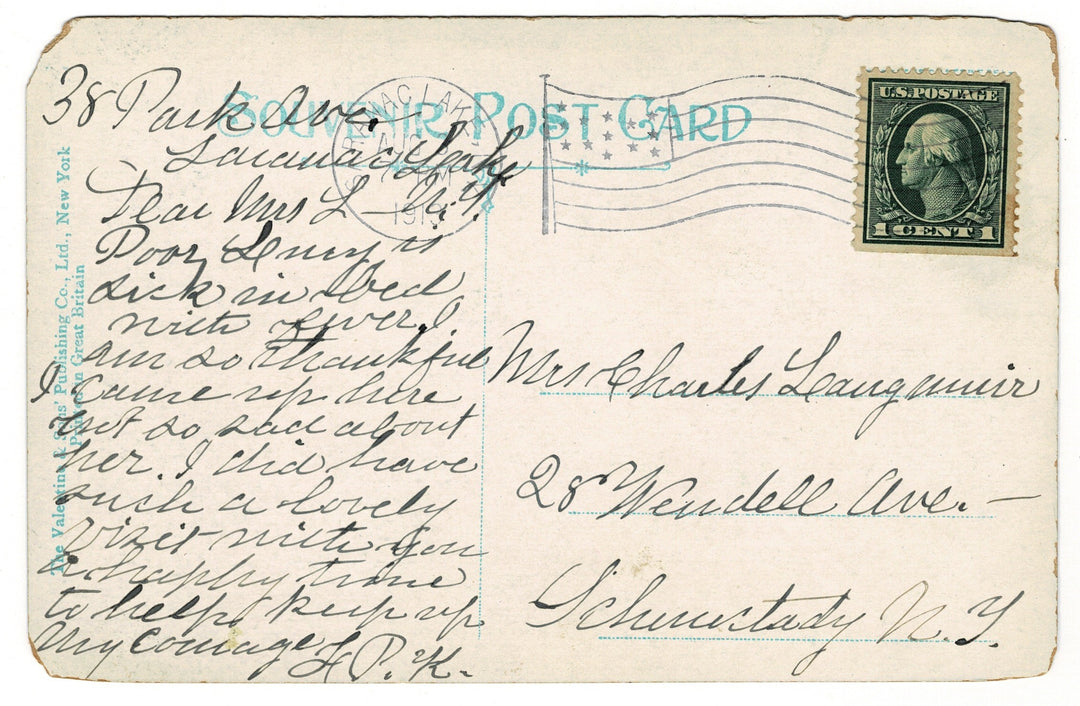 SOUVENIR POST CARD
38 Park Ave.
Saranac Lake
N.Y.
Dear Mrs L—
Poor Lucy is
sick in bed
with fever. I
am so thankful
I came up here
yet so sad about
her. I did have
such a lovely
visit with you
a happy time
to help keep up
my courage
L P. K.
SARANAC LAKE
U.S. POSTAGE
1 CENT 1
Mrs Charles Langmuir
28 Wendell Ave. —
Schenectady N. Y.
The Valentine & Sons' Publishing Co., Ltd., New York
Printed in Great Britain